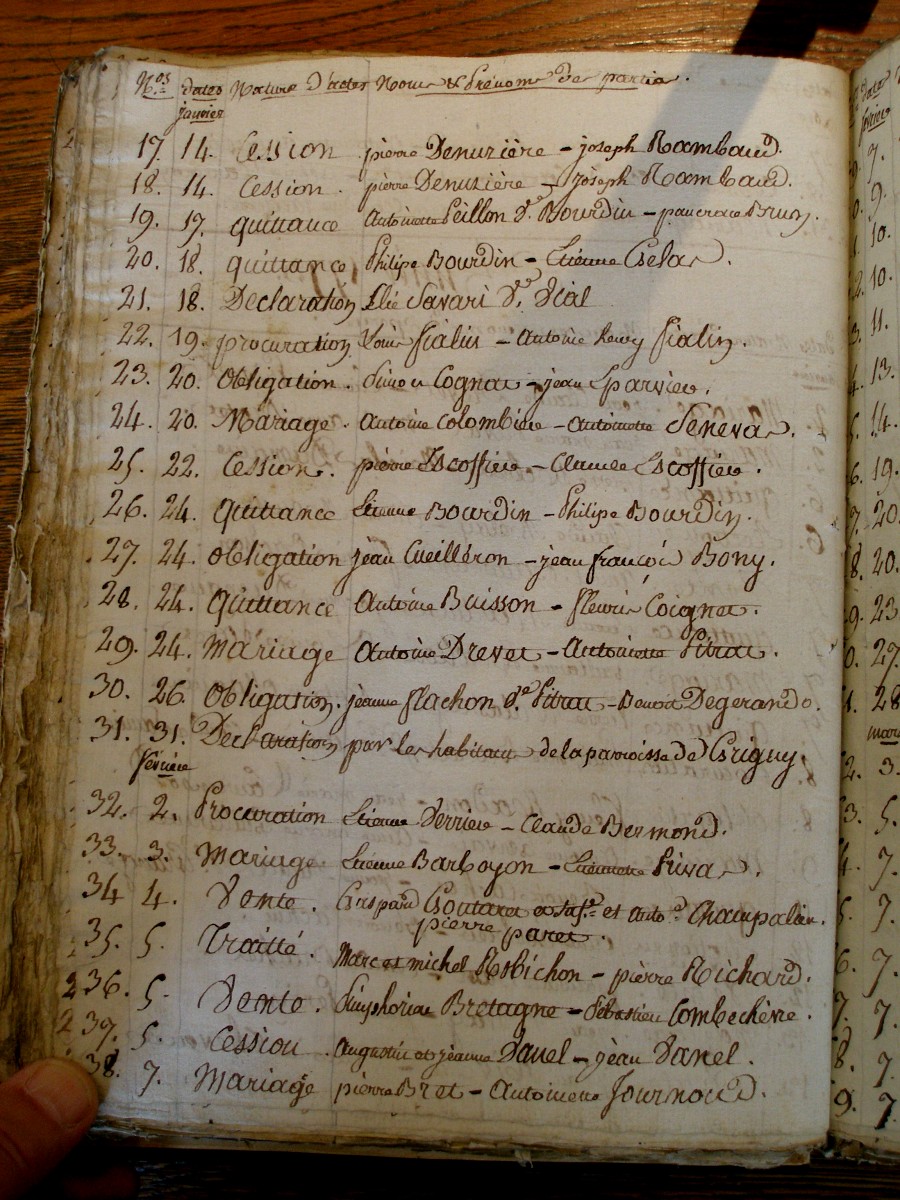 N.os dates Nature D'actes Noms & Prénoms des parties.
janvier
17. 14. Cession pierre Denuzière - joseph Rambaud.
18. 14. Cession. pierre Denuzière - joseph Rambaud.
19. 17. quittance Antoinette Peillon Ve. Bourdin - pancrace Bruin.
20. 18. quittance Philipe Bourdin -
21. 18. Declaration Elie Savari Ve. Vial
22. 19. procuration Louis fialin - Antoine henry fialin.
23. 20. Obligation. Simon Cognat - jean Eparvier.
24. 20. Mariage. Antoine Colombier - Antoinette Seneva.
25. 22. Cession. pierre Escoffier - Claude Escoffier.
26. 24. quittance Etienne Bourdin - Philipe Bourdin.
27. 24. Obligation jean Cueilleron - jean françois Bony.
28. 24. quittance Antoine Buisson - fleurie Coignet.
29. 24. Mariage Antoine Drevet - Antoinette Pitrat.
30. 26. Obligation. jeanne flachon Ve. Pitrat - Benoit Degerando.
31. 31. Declaration par les habitants de la paroisse de Grigny.
février
32. 2. Procuration Etienne Verrier - Claude Bermond.
33. 3. Mariage Etienne Barboyon - Etiennette Riva
34 4. Vente. Gaspard Goutaret et sa f.e et anto.e Champalier.
pierre paret.
35. 5. Traitté. Marc et michel Robichon - pierre Richard.
36. 5. Vente. Simphorien Bretagne - Sébastien Combechère.
37. 5. Cession. Augustin et jeanne Vanel - jean Vanel.
38. 7. Mariage pierre Bret - Antoinette Journoud.
dates
février
7.
9.
10.
10.
11.
13.
14.
19.
20.
20.
23
27.
28
mars
3.
5.
7.
7.
7.
7.
7.
7.